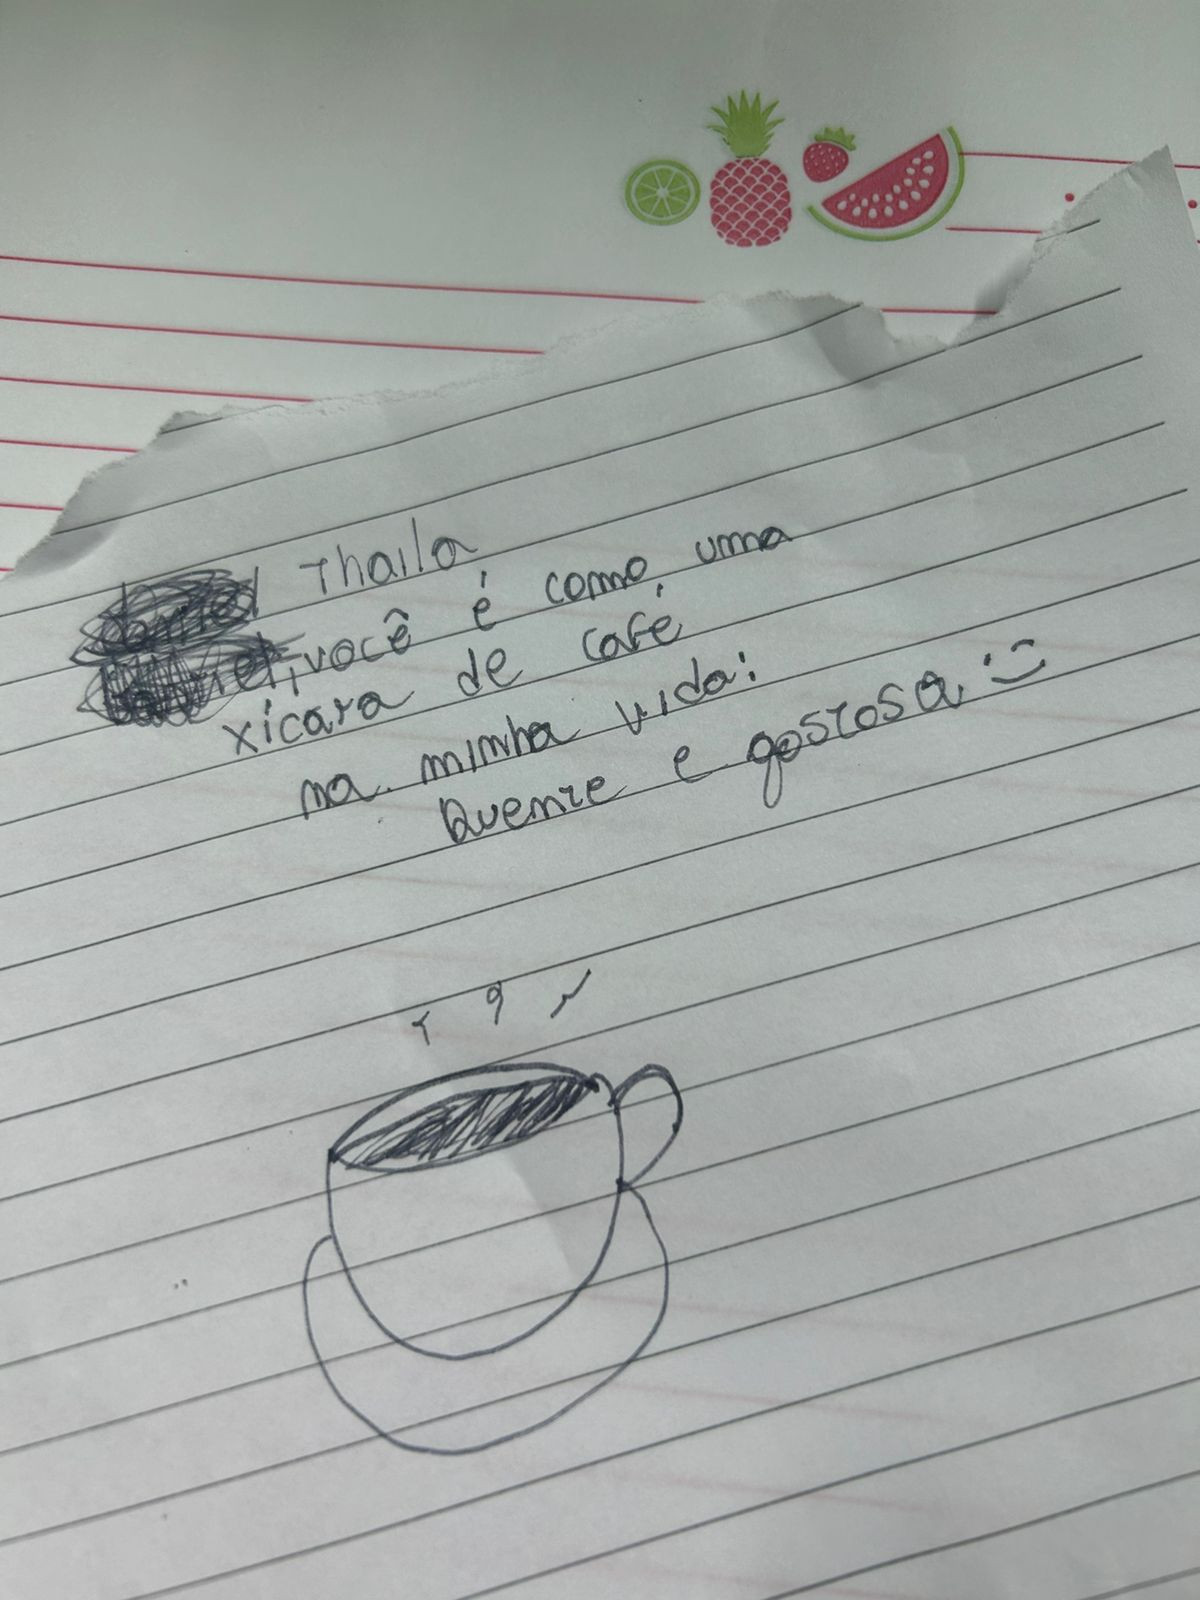 Thaila,
você é como uma
xícara de café
na minha vida:
Quente e gostosa :)